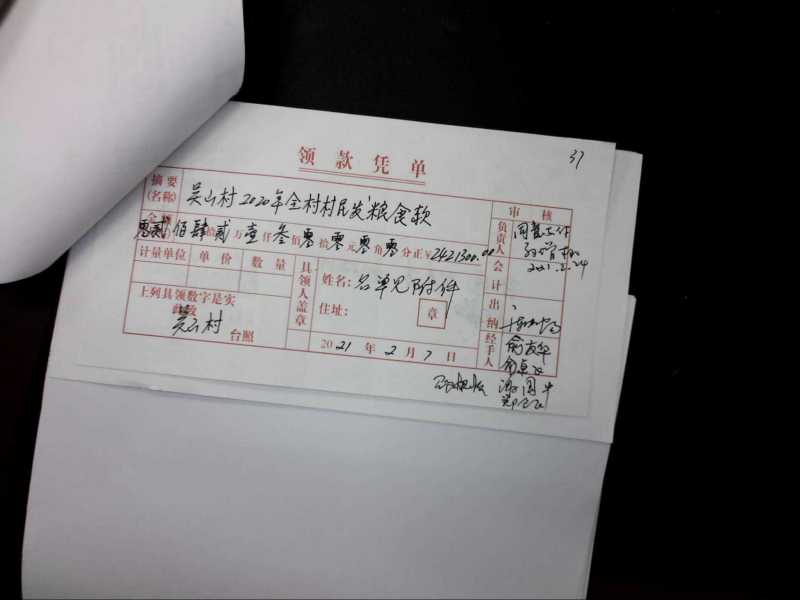 37
领款凭单
摘要(名称) 吴山村2020年全村村民发粮食款
金额 零贰佰肆贰万壹仟叁佰零拾零元零角零分正¥2421300.00
计量单位 单价 数量
上列具领数字是实
此致
吴山村 台照
具领人盖章
姓名:名单见附件
住址: 章
2021年2月7日
审核
负责人 同意支付
2021.2.24
会计
出纳
经手人 俞友华